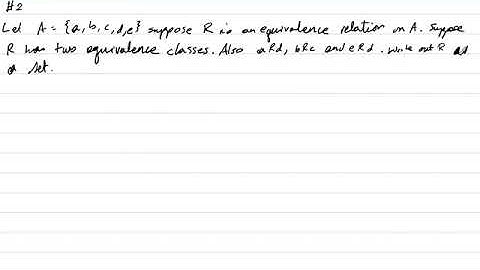 #2
Let A = {a,b,c,d,e} suppose R is an equivalence relation on A. Suppose
R has two equivalence classes. Also aRd, bRc and eRd. Write out R as
a set.